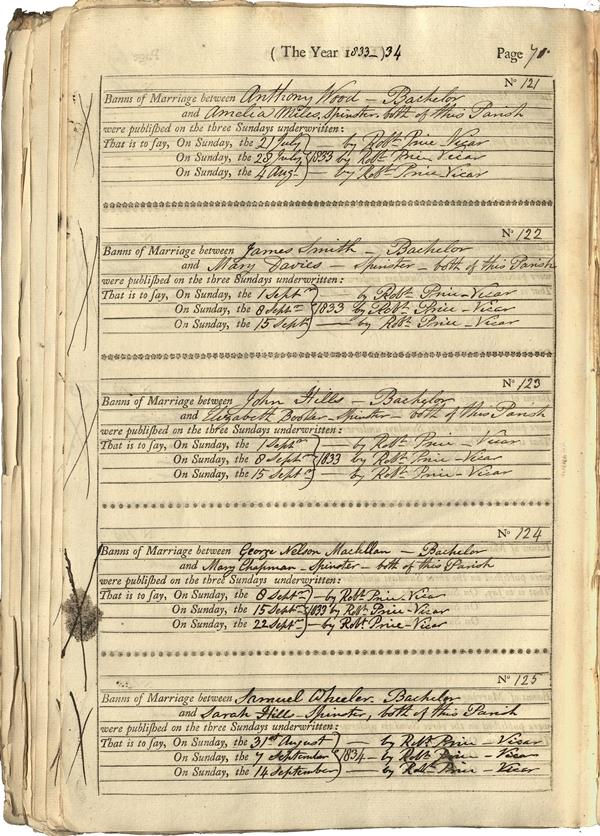 ( The Year 1833–)34 Page 71.
No 121
Banns of Marriage between Anthony Wood – Bachelor
and Amelia Miles, Spinster, both of this Parish
were publiſhed on the three Sundays underwritten:
That is to ſay, On Sunday, the 21 July – by Robt. Price – Vicar
On Sunday, the 28 July 1833 by Robt. Price, Vicar
On Sunday, the 4 Augt. – by Robt. Price Vicar
No 122
Banns of Marriage between James Smith – Bachelor
and Mary Davies – Spinster – both of this Parish
were publiſhed on the three Sundays underwritten:
That is to ſay, On Sunday, the 1 Septr. – by Robt. Price – Vicar
On Sunday, the 8 Septr. 1833 by Robt. Price – Vicar
On Sunday, the 15 Septr. – by Robt. Price – Vicar
No 123
Banns of Marriage between John Hills – Bachelor
and Elizabeth – Spinster – both of this Parish
were publiſhed on the three Sundays underwritten:
That is to ſay, On Sunday, the 1 Septr. – by Robt. Price – Vicar
On Sunday, the 8 Septr. 1833 by Robt. Price – Vicar
On Sunday, the 15 Septr. – by Robt. Price – Vicar
No 124
Banns of Marriage between George Nelson – Bachelor
and Mary Chapman – Spinster – both of this Parish
were publiſhed on the three Sundays underwritten:
That is to ſay, On Sunday, the 8 Septr. – by Robt. Price. Vicar
On Sunday, the 15 Septr. 1833 by Robt. Price – Vicar
On Sunday, the 22 Septr. – by Robt. Price – Vicar
No 125
Banns of Marriage between Samuel Wheeler. Bachelor
and Sarah Hills – Spinster, both of this Parish
were publiſhed on the three Sundays underwritten:
That is to ſay, On Sunday, the 31st August – by Robt. Price – Vicar
On Sunday, the 7 September 1834 – by Robt. Price – Vicar
On Sunday, the 14 September – by Robt. Price – Vicar